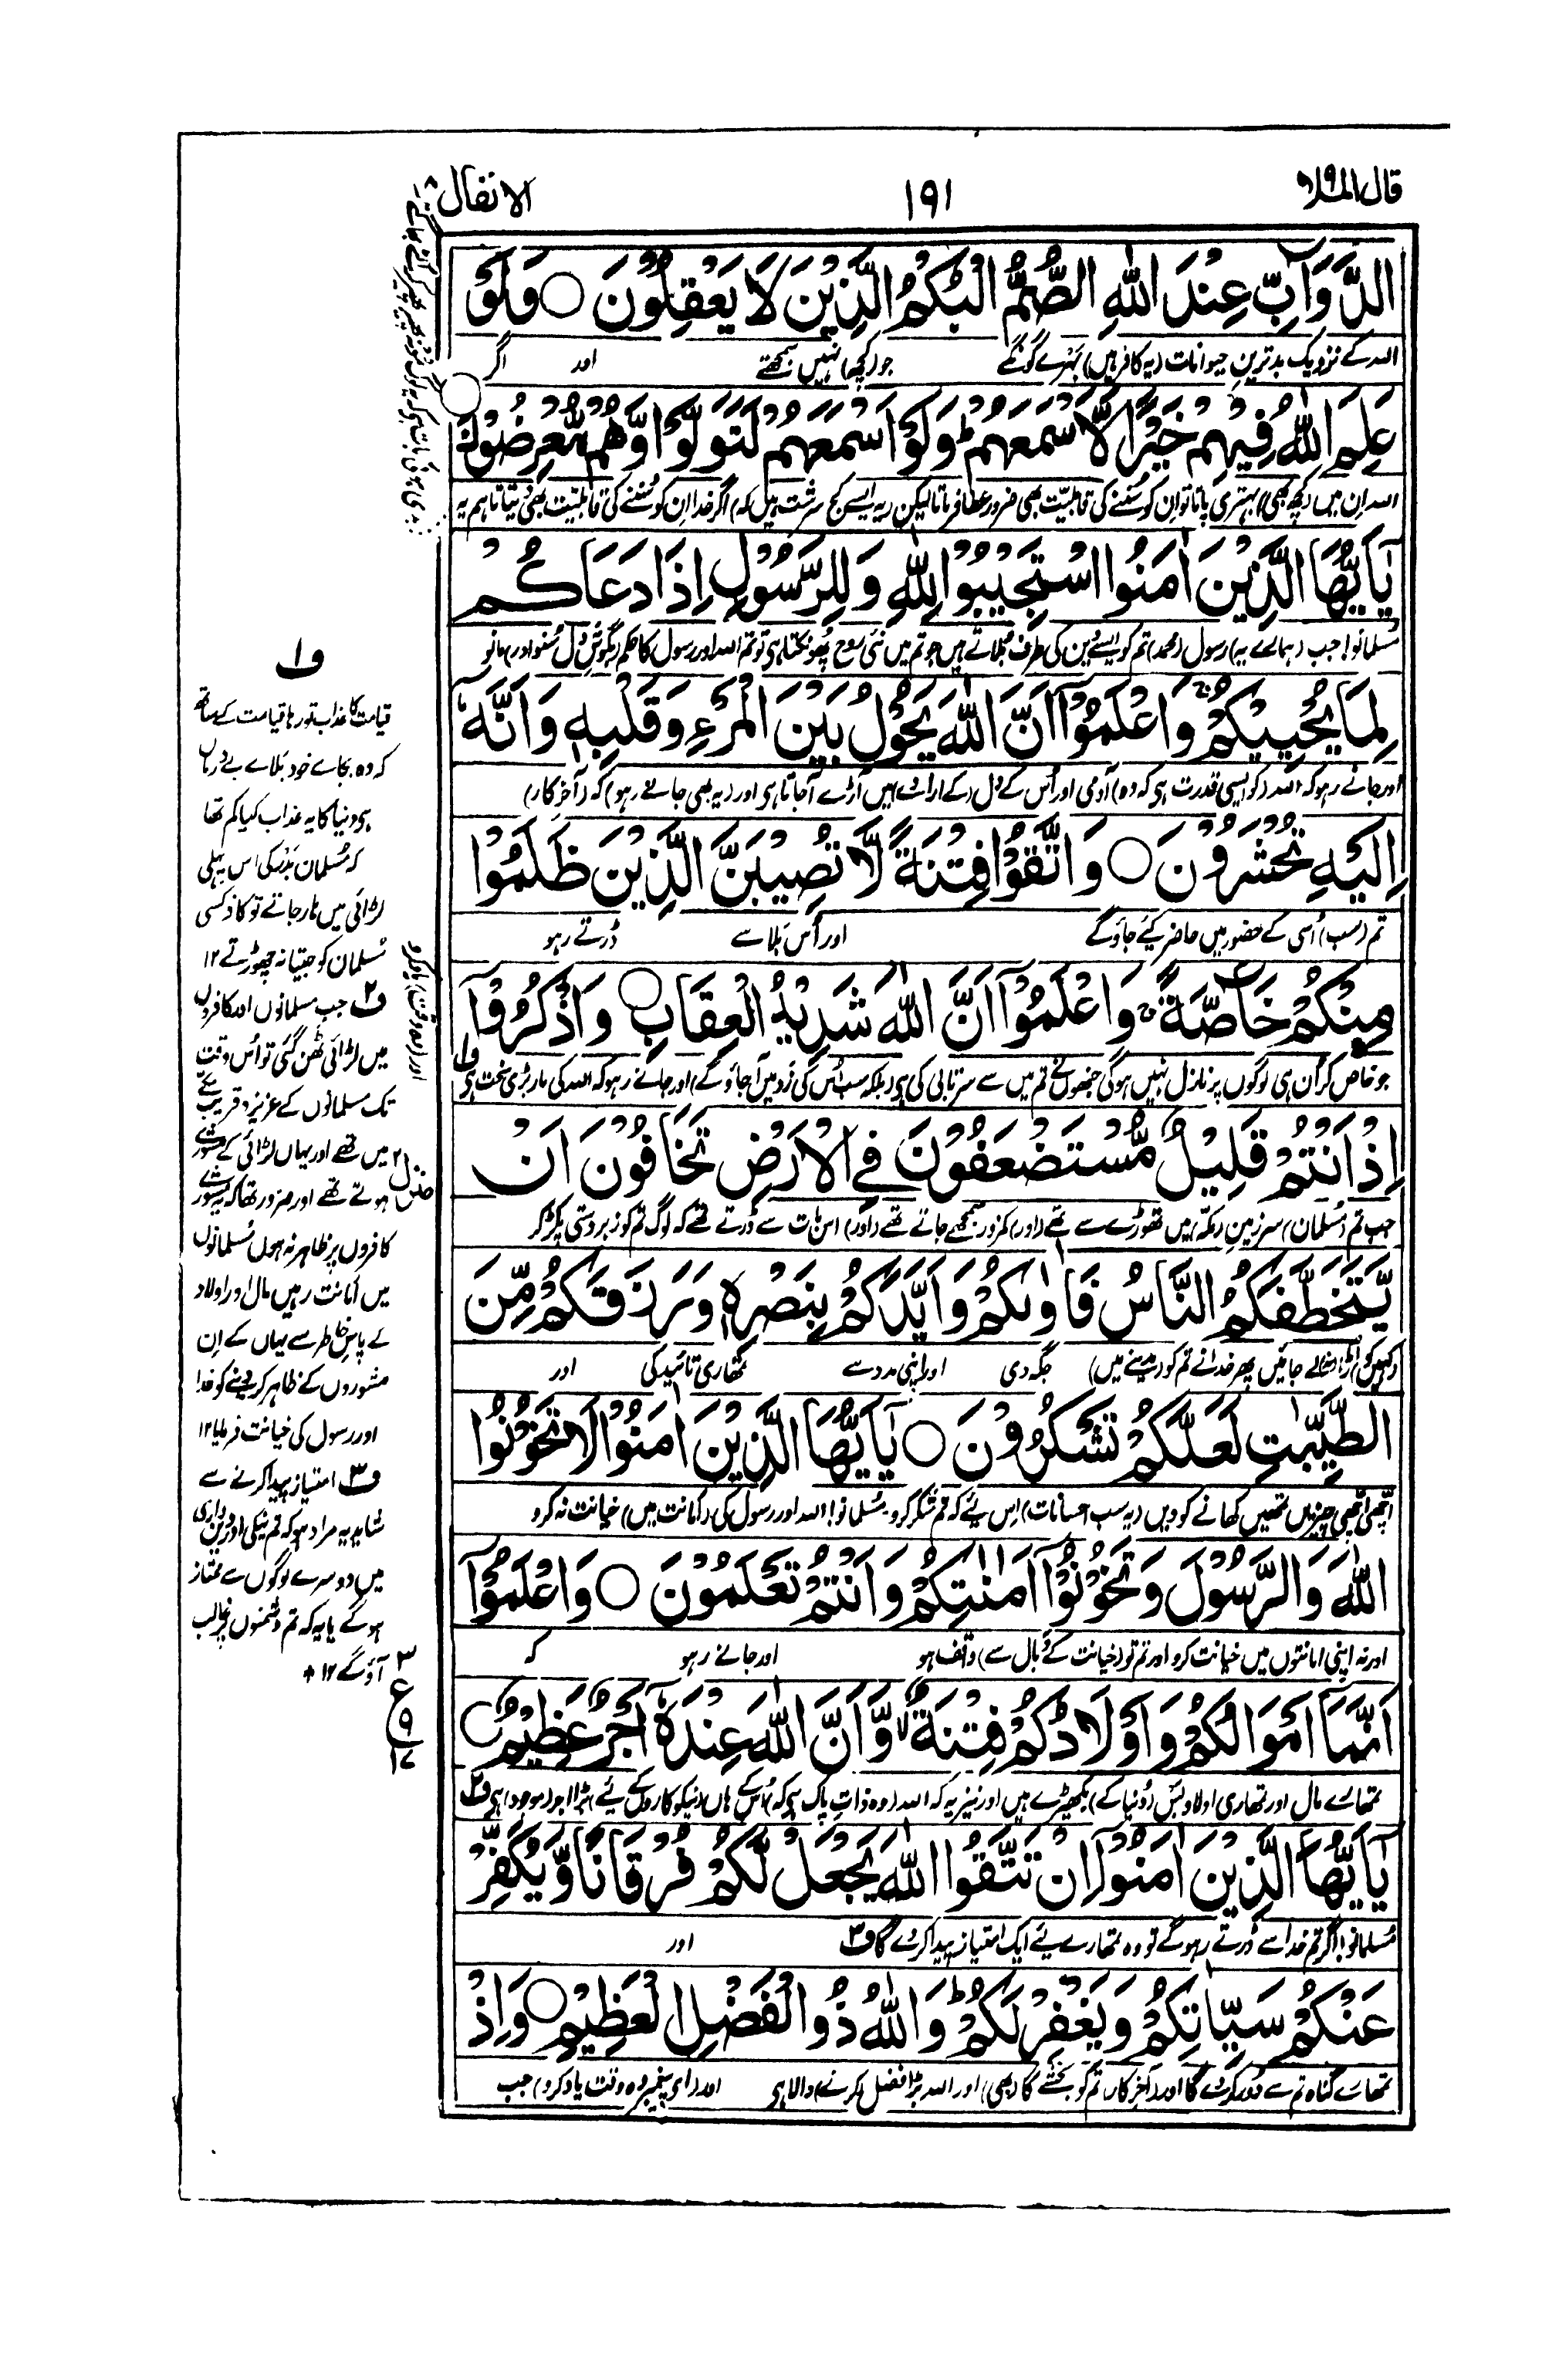 قال الملا ۹
۱۹۱
الانفال ۸
الدَّوَآبِّ عِنْدَ اللّٰهِ الصُّمُّ الْبُكْمُ الَّذِیْنَ لَا یَعْقِلُوْنَ ○ وَلَوْ
اللہ کے نزدیک بدترین حیوانات (یہ کافر ہیں) بہرے گونگے جو (کچھ) نہیں سمجھتے اور اگر
عَلِمَ اللّٰهُ فِیْهِمْ خَیْرًا لَّاَسْمَعَهُمْ ؕ وَلَوْ اَسْمَعَهُمْ لَتَوَلَّوْا وَّهُمْ مُّعْرِضُوْنَ ○
اللہ ان میں (کچھ بھی) بہتری پاتا تو ان کو سننے کی قابلیت بھی ضرور عطا فرماتا لیکن (یہ ایسے کج سرشت ہیں کہ) اگر خدا ان کو سننے کی قابلیت بھی دیتا تاہم یہ
یٰۤاَیُّهَا الَّذِیْنَ اٰمَنُوا اسْتَجِیْبُوْا لِلّٰهِ وَلِلرَّسُوْلِ اِذَا دَعَاكُمْ
مسلمانو! جب (ہمارے یہ) رسول (محمد) تم کو ایسے دین کی طرف بلاتے ہیں جو تم میں نئی روح پھونکتا ہی تو تم اللہ اور رسول کا حکم (بگوش دل سنو اور) مانو
لِمَا یُحْیِیْكُمْ ۚ وَاعْلَمُوْۤا اَنَّ اللّٰهَ یَحُوْلُ بَیْنَ الْمَرْءِ وَقَلْبِهٖ وَاَنَّهٗۤ
اور جانے رہو کہ اللہ (کو ایسی قدرت ہی کہ وہ) آدمی اور اس کے دل (کے ارادے) میں آڑے آجاتا ہی اور (یہ بھی جانے رہو) کہ (آخرکار)
اِلَیْهِ تُحْشَرُوْنَ ○ وَاتَّقُوْا فِتْنَةً لَّا تُصِیْبَنَّ الَّذِیْنَ ظَلَمُوْا
تم (سب) اسی کے حضور میں حاضر کیے جاؤ گے اور اس بلا سے ڈرتے رہو
مِنْكُمْ خَآصَّةً ۚ وَاعْلَمُوْۤا اَنَّ اللّٰهَ شَدِیْدُ الْعِقَابِ ○ وَاذْكُرُوْۤا
جو خاص کر ان ہی لوگوں پر نازل نہیں ہوگی جنھوں نے تم میں سے سرتابی کی ہی (بلکہ سب اس کی زد میں آجاؤ گے) اور جانے رہو کہ اللہ کی مار بڑی سخت ہی ف۱
اور (وہ وقت) یاد کرو
اِذْ اَنْتُمْ قَلِیْلٌ مُّسْتَضْعَفُوْنَ فِی الْاَرْضِ تَخَافُوْنَ اَنْ
جب تم (مسلمان) سرزمین (مکہ) میں تھوڑے سے تھے (اور) کمزور سمجھے جاتے تھے (اور) اس بات سے ڈرتے تھے کہ لوگ تم کو زبردستی پکڑ کر
یَّتَخَطَّفَكُمُ النَّاسُ فَاٰوٰىكُمْ وَاَیَّدَكُمْ بِنَصْرِهٖ وَرَزَقَكُمْ مِّنَ
(کہیں کو) اڑا (نہ) لے جائیں پھر خدا نے تم کو (مدینے میں) جگہ دی اور اپنی مدد سے تمھاری تائید کی اور
الطَّیِّبٰتِ لَعَلَّكُمْ تَشْكُرُوْنَ ○ یٰۤاَیُّهَا الَّذِیْنَ اٰمَنُوْا لَا تَخُوْنُوا
اچھی اچھی چیزیں تمھیں کھانے کو دیں (یہ سب احسانات) اس لیے کہ تم شکر کرو۔ مسلمانو! اللہ اور رسول کی (امانت میں) خیانت نہ کرو
اللّٰهَ وَالرَّسُوْلَ وَتَخُوْنُوْۤا اَمٰنٰتِكُمْ وَاَنْتُمْ تَعْلَمُوْنَ ○ وَاعْلَمُوْۤا
اور نہ اپنی امانتوں میں خیانت کرو اور تم تو (خیانت کے وبال سے) واقف ہو اور جانے رہو کہ
اَنَّمَاۤ اَمْوَالُكُمْ وَاَوْلَادُكُمْ فِتْنَةٌ ۙ وَّاَنَّ اللّٰهَ عِنْدَهٗۤ اَجْرٌ عَظِیْمٌ ○
تمھارے مال اور تمھاری اولاد بس (دنیا کے) بکھیڑے ہیں اور نیز یہ کہ اللہ (وہ ذات پاک ہی کہ) اس کے ہاں (نیکو کاروں کے لیے) بڑا اجر (موجود) ہی ف۲
یٰۤاَیُّهَا الَّذِیْنَ اٰمَنُوْۤا اِنْ تَتَّقُوا اللّٰهَ یَجْعَلْ لَّكُمْ فُرْقَانًا وَّیُكَفِّرْ
مسلمانو! اگر تم خدا سے ڈرتے رہو گے تو وہ تمھارے لیے ایک امتیاز پیدا کر دے گا ف۳ اور
عَنْكُمْ سَیِّاٰتِكُمْ وَیَغْفِرْ لَكُمْ ؕ وَاللّٰهُ ذُو الْفَضْلِ الْعَظِیْمِ ○ وَاِذْ
تمھارے گناہ تم سے دور کر دے گا اور (آخرکار تم کو) بخشے گا (بھی) اور اللہ بڑا فضل (کرنے) والا ہی اور (اے پیغمبر وہ وقت یاد کرو) جب
ف۱
قیامت کا عذاب تو رہا قیامت کے ساتھ
کہ وہ بجائے خود بلائے بے درماں
ہی دنیا کا یہ عذاب کیا کم تھا
کہ مسلمان بدر کی اس پہلی
لڑائی میں ہار جاتے تو کافر کسی
مسلمان کو جیتا نہ چھوڑتے ۱۲
ف۲ جب مسلمانوں اور کافروں
میں لڑائی ٹھن گئی تو اس وقت
تک مسلمانوں کے عزیز و قریب مکے
میں تھے اور یہاں لڑائی کے مشورے
ہوتے تھے اور ضرور تھا کہ یہ مشورے
کافروں پر ظاہر نہ ہوں مسلمانوں
میں امانت رہیں مال اور اولاد
کے پاس خاطر سے یہاں کے ان
مشوروں کے ظاہر کر دینے کو خدا
اور رسول کی خیانت فرمایا ۱۲
ف۳ امتیاز پیدا کرنے سے
شاید یہ مراد ہو کہ تم نیکی اور دین داری
میں دوسرے لوگوں سے ممتاز
ہو گے یا یہ کہ تم دشمنوں پر غالب
آؤ گے ۱۲
منزل ۲
۳
ع
۹
۱۷